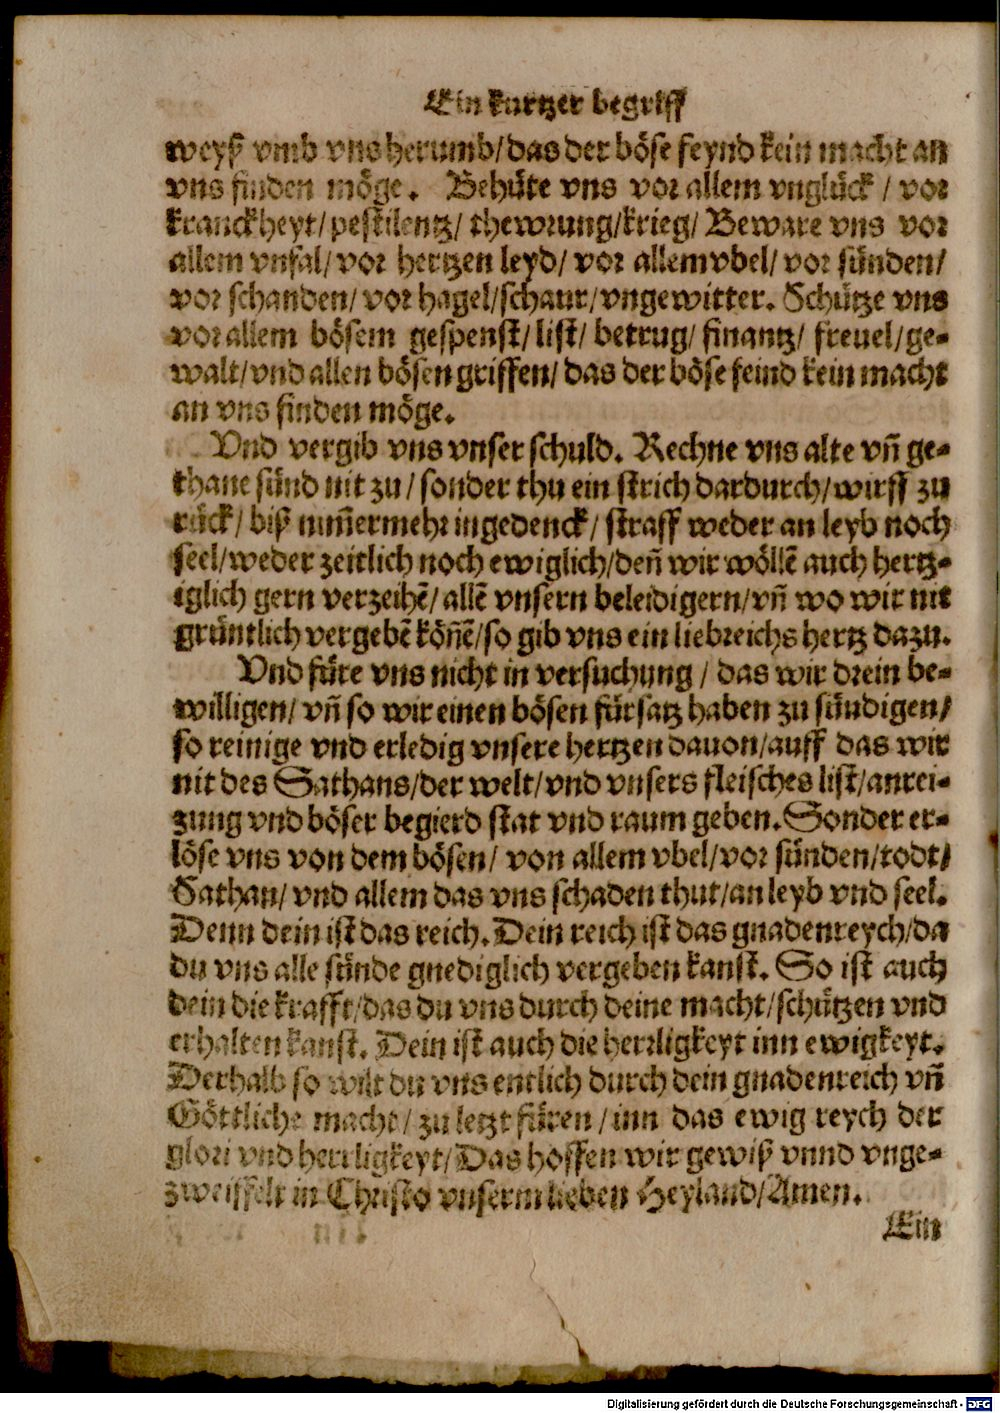 Ein kurtzer begriff
weyß vmb vns herumb/das der böse feynd kein macht an
vns finden möge. Behüte vns vor allem vnglück / vor
kranckheyt/ pestilentz/ thewrung/krieg/ Beware vns vor
allem vnfal/ vor hertzen leyd/ vor allem vbel/ vor sünden/
vor schanden/ vor hagel/schaur/vngewitter. Schütze vns
vor allem bösem gespenst/list/ betrug/ finantz/ freuel/ge-
walt/vnd allen bösen griffen/ das der böse feind kein macht
an vns finden möge.
Vnd vergib vns vnser schuld. Rechne vns alte vñ ge-
thane sünd nit zu / sonder thu ein strich dardurch/wirff zu
rück/ biß nim̃ermehr ingedenck/ straff weder an leyb noch
seel/weder zeitlich noch ewiglich/deñ wir wöllẽ auch hertz-
iglich gern verzeihẽ/ allẽ vnsern beleidigern/vñ wo wir nit
gründtlich vergebẽ köñẽ/so gib vns ein liebreichs hertz dazu.
Vnd füre vns nicht in versuchung / das wir drein be-
willigen/ vñ so wir einen bösen fürsatz haben zu sündigen/
so reinige vnd erledig vnsere hertzen dauon/auff das wir
nit des Sathans/der welt/vnd vnsers fleisches list/anrei-
zung vnd böser begierd stat vnd raum geben. Sonder er-
löse vns von dem bösen/ von allem vbel/vor sünden/todt/
Sathan/ vnd allem das vns schaden thut/an leyb vnd seel.
Denn dein ist das reich. Dein reich ist das gnadenreych/da
du vns alle sünde gnediglich vergeben kanst. So ist auch
dein die krafft/das du vns durch deine macht/schützen vnd
erhalten kanst. Dein ist auch die herrligkeyt inn ewigkeyt.
Derhalb so wilt du vns entlich durch dein gnadenreich vñ
Göttliche macht/ zu letzt füren / inn das ewig reych der
glori vnd herrligkeyt/ Das hoffen wir gewiß vnnd vnge-
zweiffelt in Christo vnserm lieben Heyland/Amen.
Ein
Digitalisierung gefördert durch die Deutsche Forschungsgemeinschaft - DFG